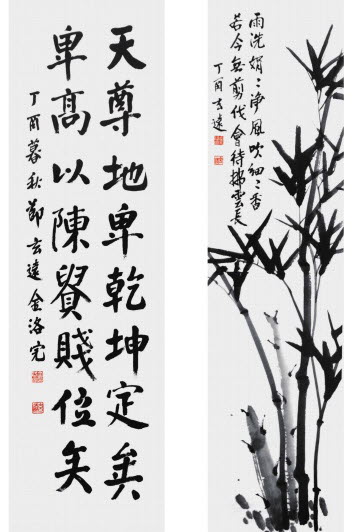 天尊地卑乾坤定矣
卑高以陳貴賤位矣
丁酉暮秋節玄遠金洛完
雨洗娟娟淨風吹細細香
若令無剪伐會待拂雲長
丁酉玄遠